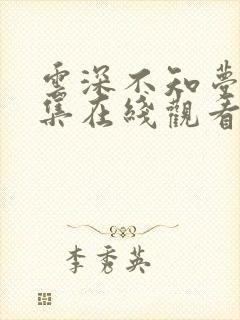 雲深不知夢
集在綫觀看
李秀英